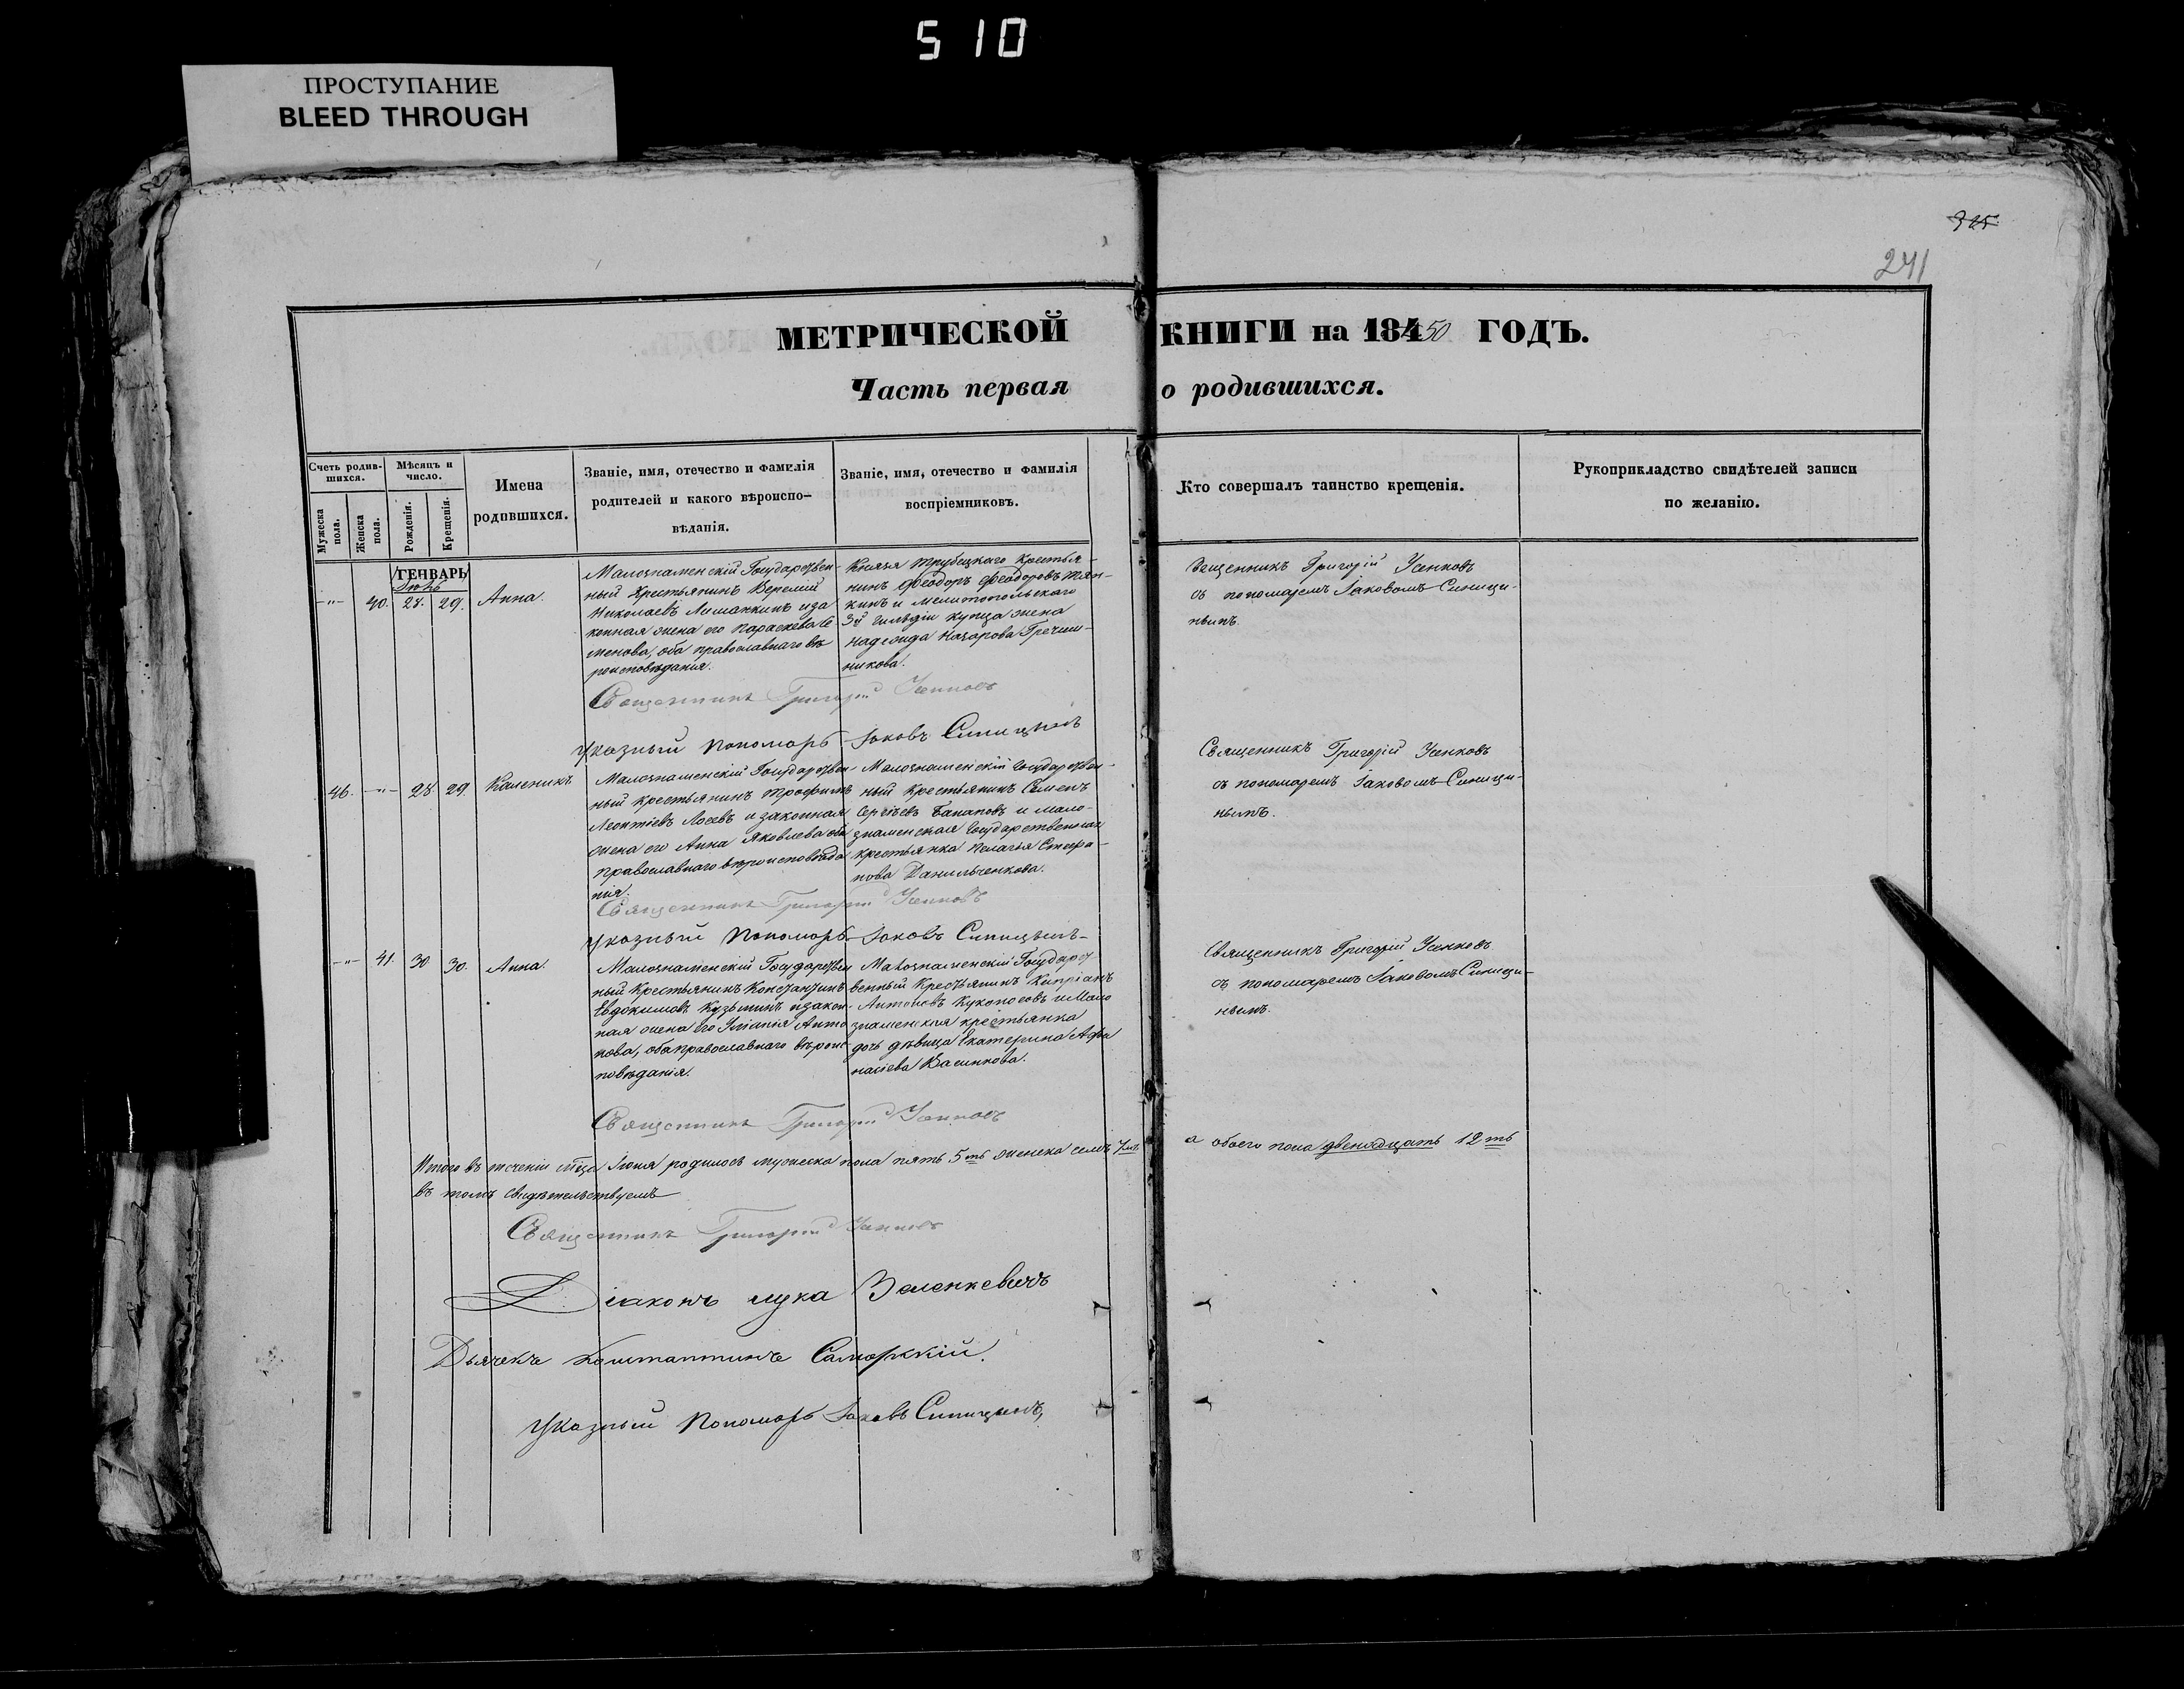 510
ПРОСТУПАНИЕ
BLEED THROUGH
315
241
МЕТРИЧЕСКОЙ КНИГИ на 184 50 ГОДЪ.
Часть первая о родившихся.
Счетъ родившихся.
Мужеска пола.
Женска пола.
Мѣсяцъ и число.
Рожденія.
Крещенія.
Имена родившихся.
Званіе, имя, отечество и фамилія
родителей и какого вѣроиспо-
вѣданія.
Званіе, имя, отечество и фамилія
воспріемниковъ.
Кто совершалъ таинство крещенія.
Рукоприкладство свидѣтелей записи
по желанію.
ГЕНВАРЬ
Іюнь
-"- 40. 28. 29. Анна.
Малознаменскій Государствен-
ный Крестьянинъ Веремій
Николаевъ Лиманкинъ и за
конная жена его Параскева Се
менова, оба православнаго вѣ
роисповѣданія.
Князя Трубецкаго Крестья-
нинъ Феодоръ Феодоровъ Тян-
кинъ и Мелитопольскаго
3й гильдіи купца жена
Надежда Назарова Гречиш-
никова.
Священникъ Григорій Усенковъ
съ пономаремъ Іаковомъ Синици-
нымъ.
Священникъ Григорій Усенковъ
Указный Пономарь Іаковъ Синицынъ
46. -"- 28 29. Каленикъ
Малознаменскій Государствен-
ный крестьянинъ Трофимъ
Леонтіевъ Лосевъ и законная
жена его Анна Яковлева оба
православнаго вѣроисповѣда
нія.
Малознаменскій Государствен-
ный Крестьянинъ Семенъ
Сергѣевъ Банановъ и мало-
знаменская Государственная
крестьянка Пелагія Стефа-
нова Данильченкова.
Священникъ Григорій Усенковъ
съ пономаремъ Іаковомъ Синици-
нымъ.
Священникъ Григорій Усенковъ
Указный Пономарь Іаковъ Синицынъ
-"- 41. 30 30. Анна.
Малознаменскій Государствен
ный Крестьянинъ Константинъ
Евдокимовъ Кузьминъ и закон-
ная жена его Уліанія Анто
нова, оба православнаго вѣроис
повѣданія.
Малознаменскій Государст
венный Крестьянинъ Кипріанъ
Антоновъ Куконосовъ и Мало
знаменская крестьянка
дочь дѣвица Екатерина Афа
насіева Васинкова.
Священникъ Григорій Усенковъ
съ пономаремъ Іаковомъ Синици-
нымъ.
Священникъ Григорій Усенковъ
Итого въ теченіи мца Іюня родилось мужеска пола пять 5ть женска семь 7мь а обоего пола двенадцать 12ть
въ томъ свидѣтельствуемъ
Священникъ Григорій Усенковъ
Діаконъ Лука Зеленкевичъ
Дьячекъ Константинъ Саморскій.
Указный Пономарь Іаковъ Синицынъ,